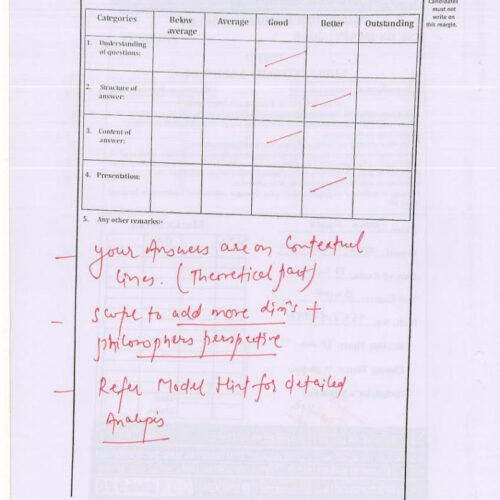 Candidates
must not
write on
this margin.
Categories Below average Average Good Better Outstanding
1. Understanding
of questions:
2. Structure of
answer:
3. Content of
answer:
4. Presentation:
5. Any other remarks:-
– your Answers are on Contextual
lines. (Theoretical part)
– Scope to add more dim's +
philosophers perspective
– Refer Model Hint for detailed
Analysis